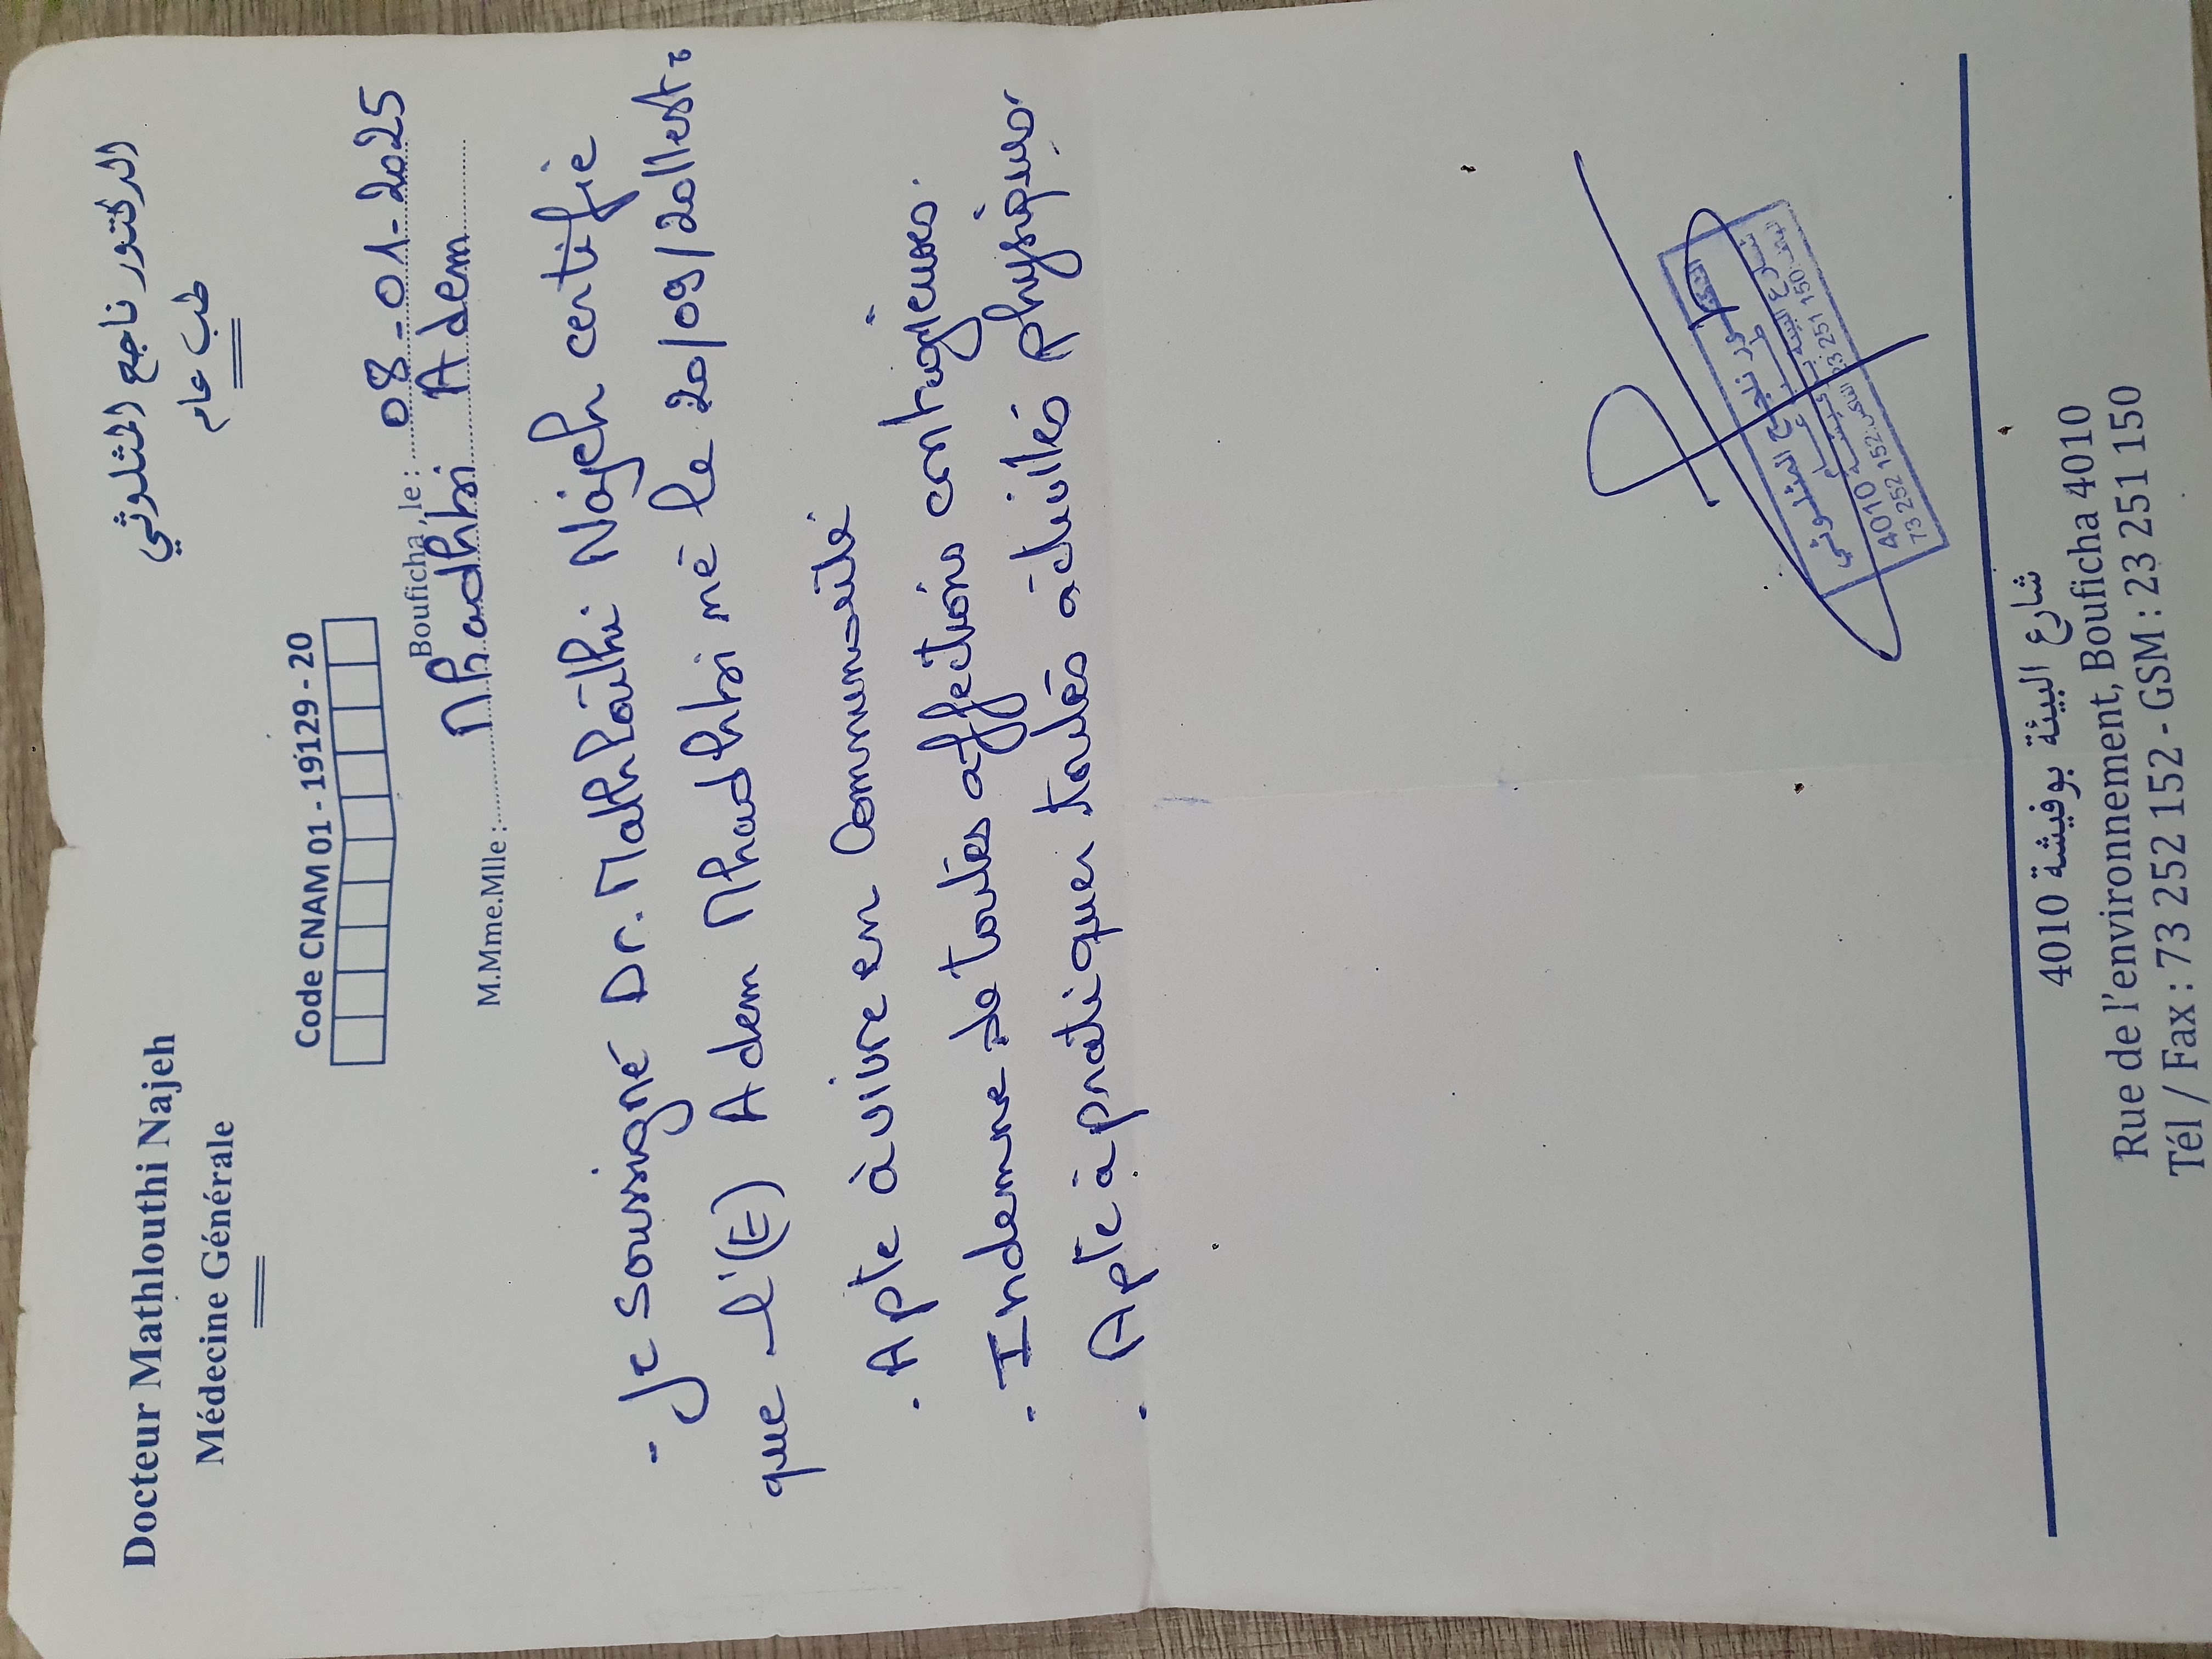 Docteur Mathlouthi Najeh
Médecine Générale
الدكتور ناجح المثلوثي
طب عام
Code CNAM 01 - 19129 - 20
Bouficha, le : 08-01-2025
M.Mme.Mlle : Mhadhbi Adem
- Je soussigné Dr. Mathlouthi Najeh certifie
que l'(E) Adem Mhadhbi né le 20/09/2011 est :
- Apte à vivre en Communauté
- Indemne de toutes affections contagieuses.
- Apte à pratiquer toutes activités physiques
الدكتور ناجح المثلوثي
4010
73 252 152 23 251 150
شارع البيئة بوفيشة 4010
Rue de l'environnement, Bouficha 4010
Tél / Fax : 73 252 152 - GSM : 23 251 150